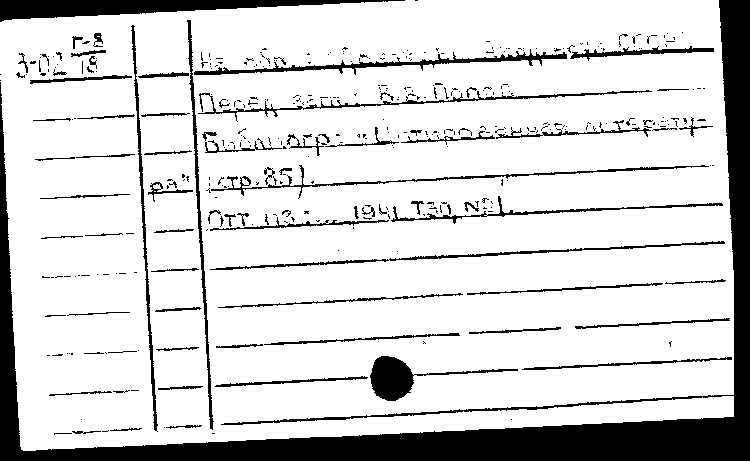 З-02 Г-8/18
На обл.: Доклады Академии СССР.
Перед загл.: В.В. Попов
Библиогр: "Цитированная литерату-
ра" (стр.85).
Отт. из: ... 1941, Т.30, №1.